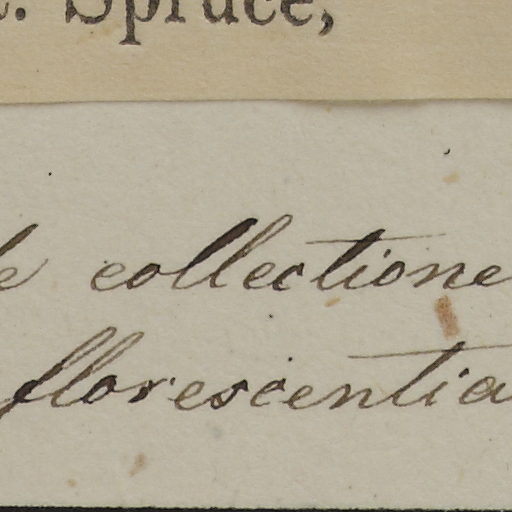 . Spruce,
e collectione
florescentia